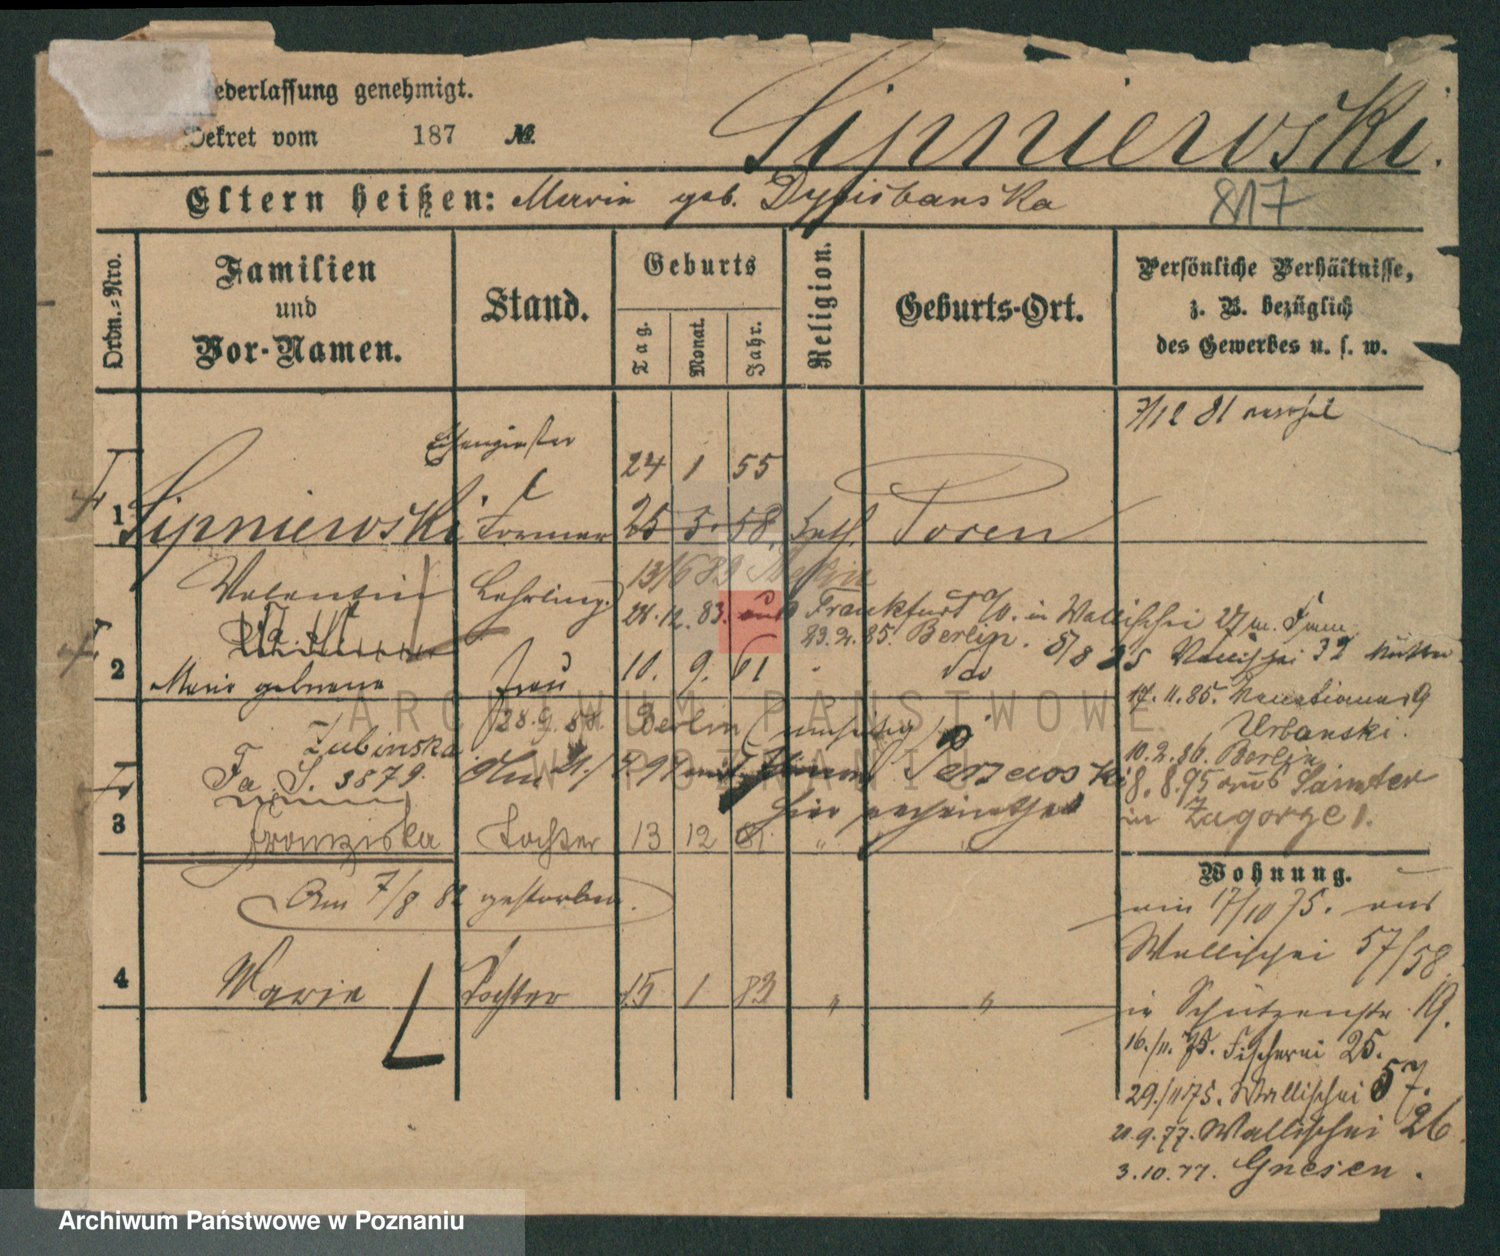 ederlassung genehmigt. Lipniewski.
Dekret vom 187 №.
Eltern heißen: Marie geb. 817
Ordn.=Nro.
Familien und Vor-Namen.
Stand.
Geburts
Tag. Monat. Jahr.
Religion.
Geburts-Ort.
Persönliche Verhältnisse,
z. B. bezüglich
des Gewerbes u. s. w.
7/12 81
24 1 55
1 Lipniewski Former 25 3. 58. Kath. Posen
Valentin Lehrling 13/6 83 Stettin
28.12.83. aus Frankfurt a/O. in Wallischei
23.2.85. Berlin. 8/8 85 Wallischei 32
2 Marie geborene Frau 10. 9. 61 " do
17.11.85. 9
Zubinska 28.9.88. Berlin
Urbanski.
10.2.86. Berlin
Fa. S. 3879.
8.8.95 aus Samter
in Zagorze 1.
3 Franziska Tochter 13 12 81 " "
Am 7/8 82 gestorben.
Wohnung.
am 17/10 75. aus
Wallischei 57/58
4 Marie Tochter 15 1 83 " "
in Schützenstr. 19.
16./11. 75. Fischerei 25.
29./11 75. Wallischei 57.
21.9.77. Wallischei 26
3.10.77. Gnesen.
ARCHIWUM PAŃSTWOWE
W POZNANIU
Archiwum Państwowe w Poznaniu